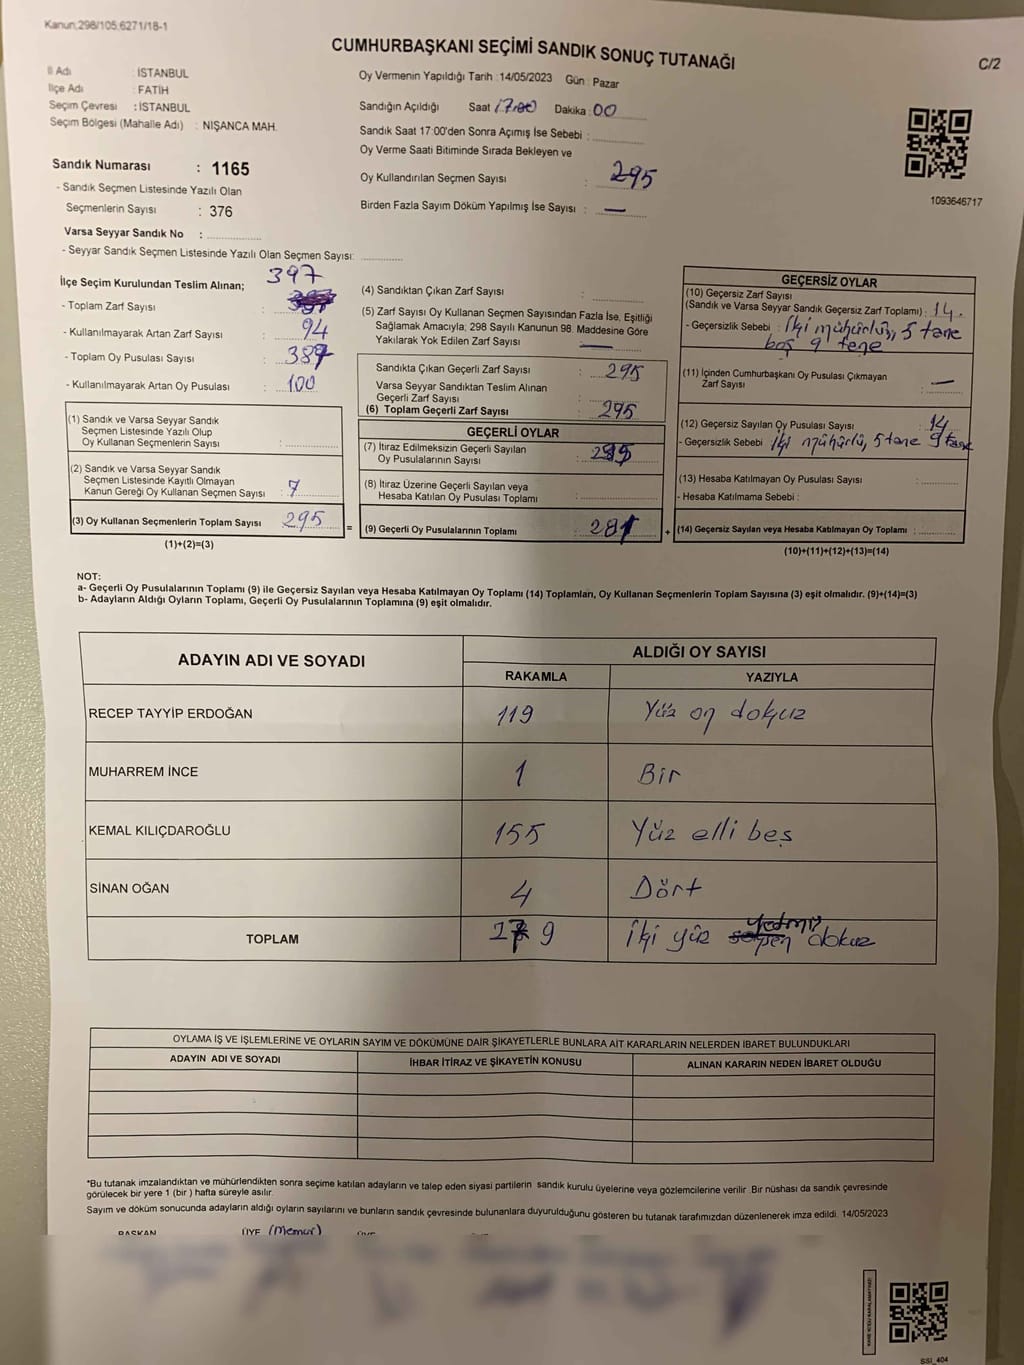 Kanun;298/105;6271/18-1
CUMHURBAŞKANI SEÇİMİ SANDIK SONUÇ TUTANAĞI
C/2
İl Adı : İSTANBUL
İlçe Adı : FATİH
Seçim Çevresi : İSTANBUL
Seçim Bölgesi (Mahalle Adı) : NİŞANCA MAH.
Oy Vermenin Yapıldığı Tarih :14/05/2023 Gün : Pazar
Sandığın Açıldığı Saat 17:00 Dakika : 00
Sandık Saat 17:00'den Sonra Açımış İse Sebebi :
Oy Verme Saati Bitiminde Sırada Bekleyen ve
Oy Kullandırılan Seçmen Sayısı : 295
Birden Fazla Sayım Döküm Yapılmış İse Sayısı : —
1093646717
Sandık Numarası : 1165
- Sandık Seçmen Listesinde Yazılı Olan
Seçmenlerin Sayısı : 376
Varsa Seyyar Sandık No :
- Seyyar Sandık Seçmen Listesinde Yazılı Olan Seçmen Sayısı:
İlçe Seçim Kurulundan Teslim Alınan;
397
- Toplam Zarf Sayısı :
- Kullanılmayarak Artan Zarf Sayısı : 94
- Toplam Oy Pusulası Sayısı :
- Kullanılmayarak Artan Oy Pusulası : 100
(1) Sandık ve Varsa Seyyar Sandık
Seçmen Listesinde Yazılı Olup
Oy Kullanan Seçmenlerin Sayısı :
(2) Sandık ve Varsa Seyyar Sandık
Seçmen Listesinde Kayıtlı Olmayan
Kanun Gereği Oy Kullanan Seçmen Sayısı : 7
(3) Oy Kullanan Seçmenlerin Toplam Sayısı 295 =
(1)+(2)=(3)
(4) Sandıktan Çıkan Zarf Sayısı :
(5) Zarf Sayısı Oy Kullanan Seçmen Sayısından Fazla İse, Eşitliği
Sağlamak Amacıyla; 298 Sayılı Kanunun 98. Maddesine Göre
Yakılarak Yok Edilen Zarf Sayısı : —
Sandıkta Çıkan Geçerli Zarf Sayısı : 295
Varsa Seyyar Sandıktan Teslim Alınan
Geçerli Zarf Sayısı :
(6) Toplam Geçerli Zarf Sayısı : 295
GEÇERLİ OYLAR
(7) İtiraz Edilmeksizin Geçerli Sayılan
Oy Pusulalarının Sayısı :
(8) İtiraz Üzerine Geçerli Sayılan veya
Hesaba Katılan Oy Pusulası Toplamı :
(9) Geçerli Oy Pusulalarının Toplamı : 281 +
GEÇERSİZ OYLAR
(10) Geçersiz Zarf Sayısı
(Sandık ve Varsa Seyyar Sandık Geçersiz Zarf Toplamı) : 14.
- Geçersizlik Sebebi : İki mühürlü, 5 tane
boş 9 tene
(11) İçinden Cumhurbaşkanı Oy Pusulası Çıkmayan
Zarf Sayısı : —
(12) Geçersiz Sayılan Oy Pusulası Sayısı : 14
- Geçersizlik Sebebi : İki mühürlü, 5 tane 9 tane
(13) Hesaba Katılmayan Oy Pusulası Sayısı :
- Hesaba Katılmama Sebebi :
(14) Geçersiz Sayılan veya Hesaba Katılmayan Oy Toplamı :
(10)+(11)+(12)+(13)=(14)
NOT:
a- Geçerli Oy Pusulalarının Toplamı (9) ile Geçersiz Sayılan veya Hesaba Katılmayan Oy Toplamı (14) Toplamları, Oy Kullanan Seçmenlerin Toplam Sayısına (3) eşit olmalıdır. (9)+(14)=(3)
b- Adayların Aldığı Oyların Toplamı, Geçerli Oy Pusulalarının Toplamına (9) eşit olmalıdır.
ADAYIN ADI VE SOYADI
ALDIĞI OY SAYISI
RAKAMLA YAZIYLA
RECEP TAYYİP ERDOĞAN 119 Yüz on dokuz
MUHARREM İNCE 1 Bir
KEMAL KILIÇDAROĞLU 155 Yüz elli beş
SİNAN OĞAN 4 Dört
TOPLAM 279 İki yüz yetmiş dokuz
OYLAMA İŞ VE İŞLEMLERİNE VE OYLARIN SAYIM VE DÖKÜMÜNE DAİR ŞİKAYETLERLE BUNLARA AİT KARARLARIN NELERDEN İBARET BULUNDUKLARI
ADAYIN ADI VE SOYADI İHBAR İTİRAZ VE ŞİKAYETİN KONUSU ALINAN KARARIN NEDEN İBARET OLDUĞU
*Bu tutanak imzalandıktan ve mühürlendikten sonra seçime katılan adayların ve talep eden siyasi partilerin sandık kurulu üyelerine veya gözlemcilerine verilir. Bir nüshası da sandık çevresinde
görülecek bir yere 1 (bir ) hafta süreyle asılır.
Sayım ve döküm sonucunda adayların aldığı oyların sayılarını ve bunların sandık çevresinde bulunanlara duyurulduğunu gösteren bu tutanak tarafımızdan düzenlenerek imza edildi. 14/05/2023
BAŞKAN ÜYE (Memur) ÜYE
SSI_404